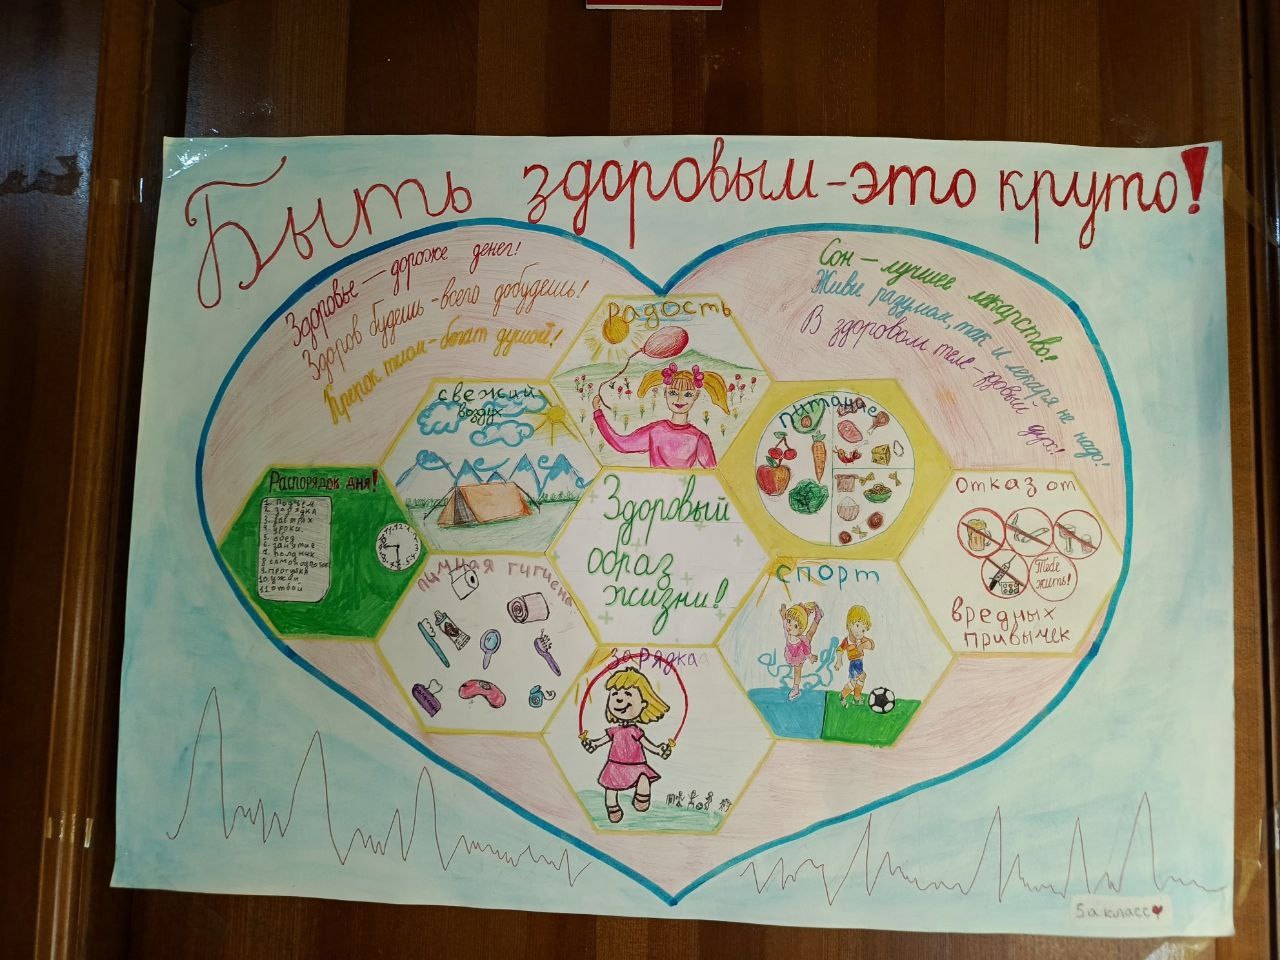 Быть здоровым - это круто!
Здоровье - дороже денег!
Здоров будешь - всего добудешь!
Крепок телом - богат душой!
Сон - лучшее лекарство!
Живи разумом, так и лекаря не надо!
В здоровом теле - здоровый дух!
Радость
Свежий
воздух
Питание
Распорядок дня!
1. Подъём
2. зарядка
3. завтрак
4. уроки
5. обед
6. занятие
7. полдник
8. самоподготов
9. прогулка
10. ужин
11. отбой
Здоровый
образ
жизни!
Отказ от
Тебе
жить!
вредных
привычек
личная гигиена
спорт
зарядка
5а класс